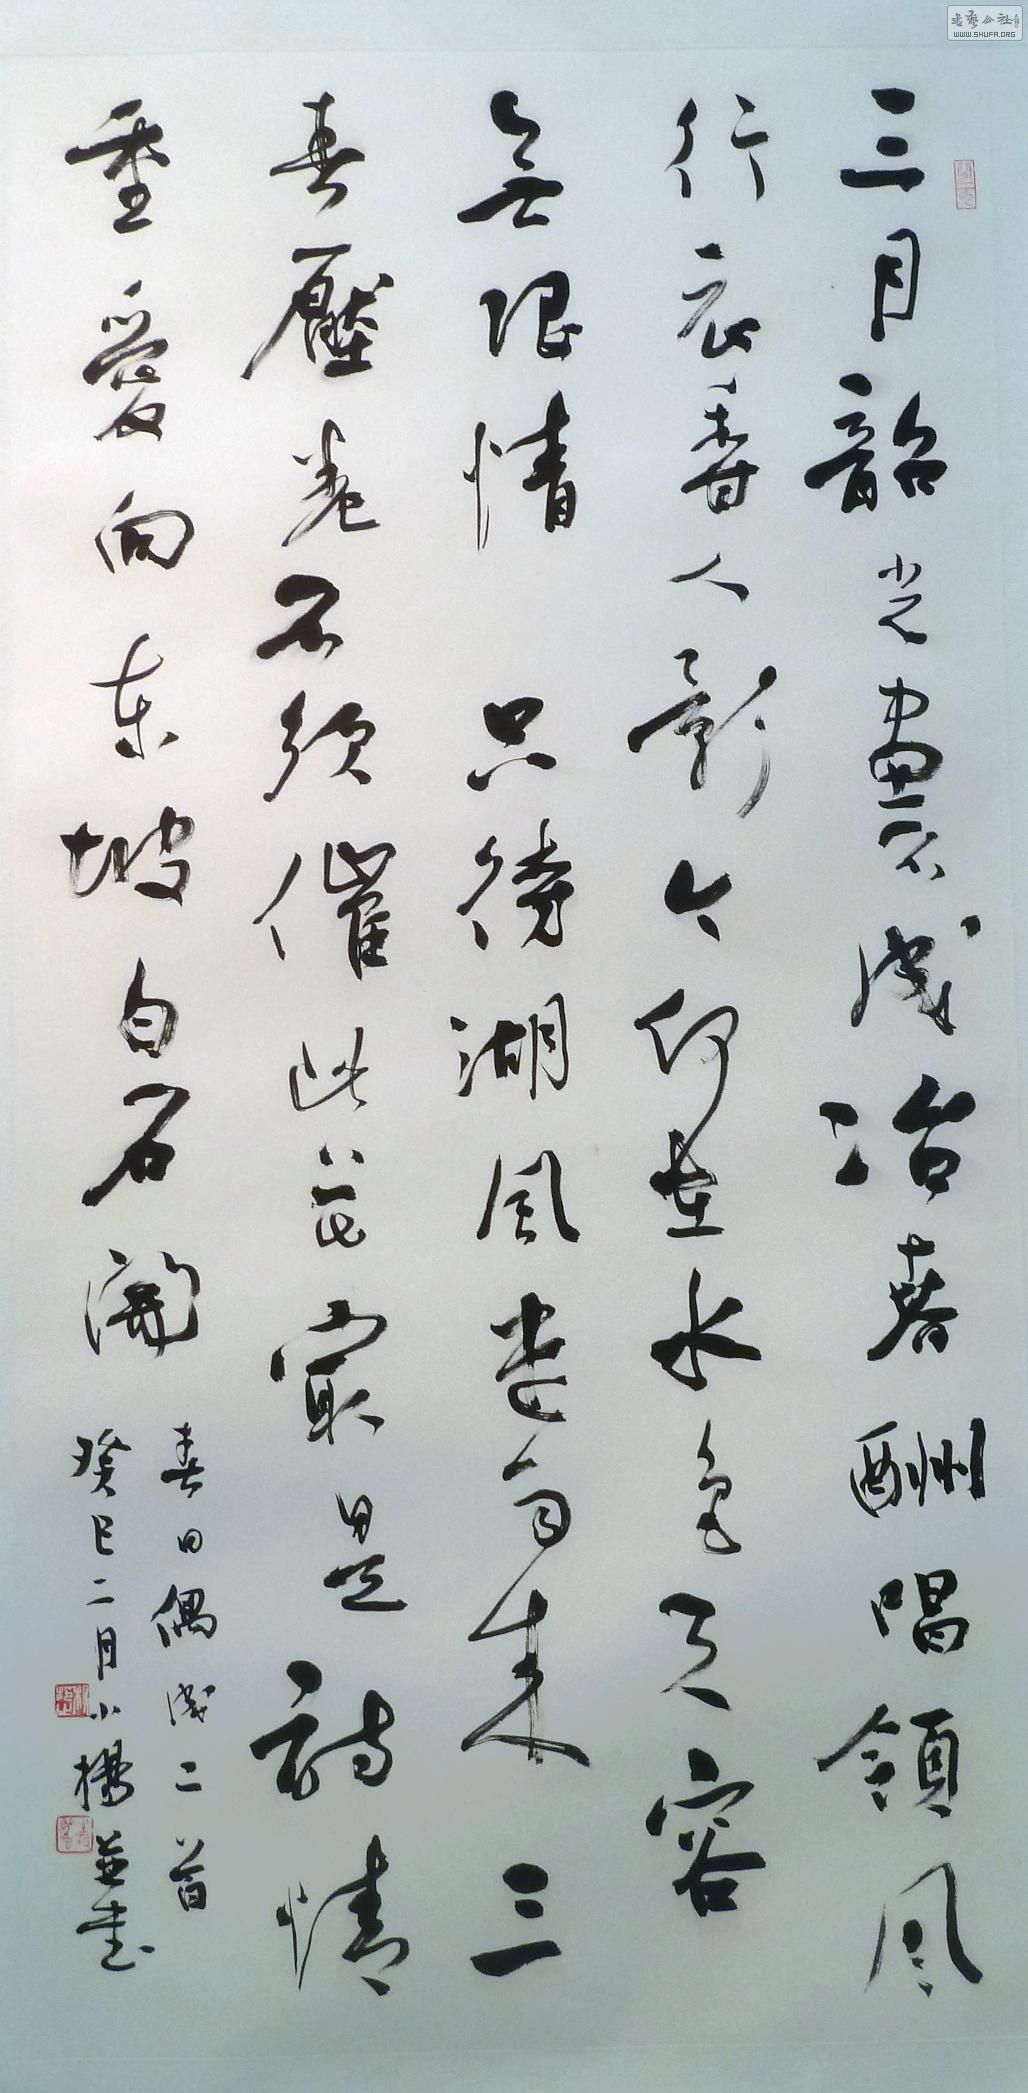 三月韶光画不成冶春酬唱领风
行衣香人影今何在水色天容
無限情 只待湖風遣句来三
春壓卷不須催此花最是詩情
重愛向東坡白石開
春日偶成二首
癸巳二月小楊並書
書藝公社
WWW.SHUFA.ORG